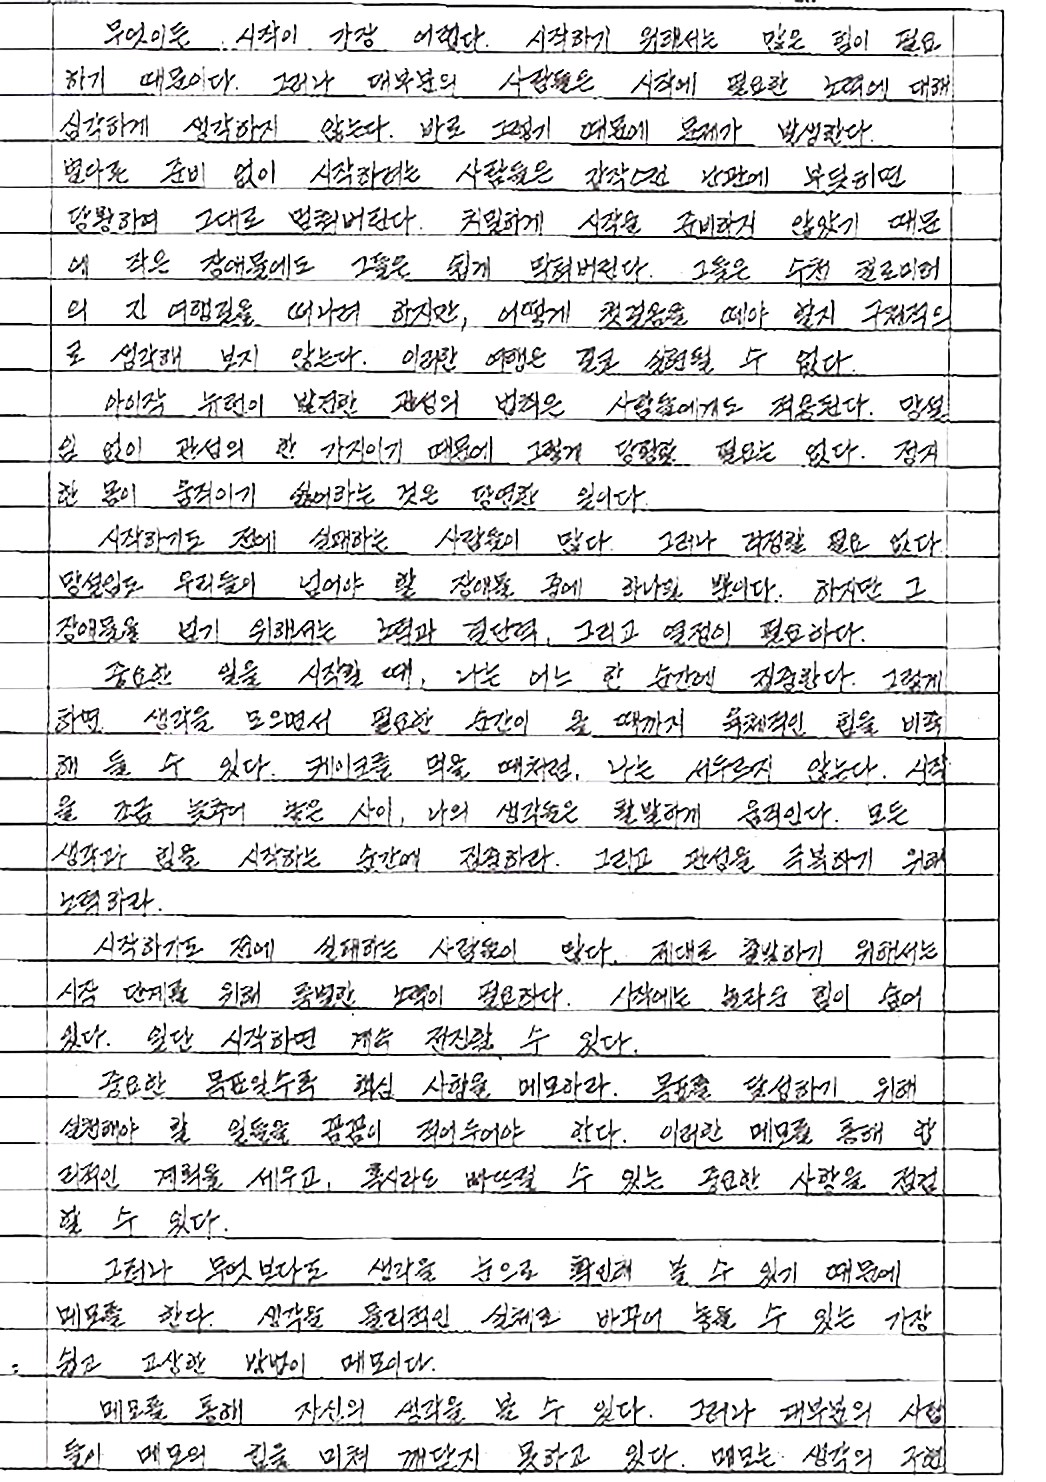 무엇이든 시작이 가장 어렵다. 시작하기 위해서는 많은 힘이 필요
하기 때문이다. 그러나 대부분의 사람들은 시작에 필요한 노력에 대해
심각하게 생각하지 않는다. 바로 그렇기 때문에 문제가 발생한다.
별다른 준비 없이 시작하려는 사람들은 갑작스런 난관에 부딪히면
당황하며 그대로 멈춰버린다. 치밀하게 시작을 준비하지 않았기 때문
에 작은 장애물에도 그들은 쉽게 막혀버린다. 그들은 수천 킬로미터
의 긴 여행길을 떠나려 하지만, 어떻게 첫걸음을 떼야 할지 구체적으
로 생각해 보지 않는다. 이러한 여행은 결코 실현될 수 없다.
아이작 뉴턴이 발견한 관성의 법칙은 사람들에게도 적용된다. 망설
임 없이 관성의 한 가지이기 때문에 그렇게 당황할 필요는 없다. 정지
한 몸이 움직이기 싫어하는 것은 당연한 일이다.
시작하기도 전에 실패하는 사람들이 많다. 그러나 걱정할 필요 없다
망설임도 우리들이 넘어야 할 장애물 중에 하나일 뿐이다. 하지만 그
장애물을 넘기 위해서는 노력과 결단력, 그리고 열정이 필요하다.
중요한 일을 시작할 때, 나는 어느 한 순간에 집중한다. 그렇게
하면 생각을 모으면서 필요한 순간이 올 때까지 육체적인 힘을 비축
해 둘 수 있다. 케이크를 먹을 때처럼, 나는 서두르지 않는다. 시작
을 조금 늦추어 놓은 사이, 나의 생각들은 활발하게 움직인다. 모든
생각과 힘을 시작하는 순간에 집중하라. 그리고 관성을 극복하기 위해
노력하라.
시작하기도 전에 실패하는 사람들이 많다. 제대로 출발하기 위해서는
시작 단계를 위해 특별한 노력이 필요하다. 시작에는 놀라운 힘이 숨어
있다. 일단 시작하면 계속 전진할 수 있다.
중요한 목표일수록 핵심 사항을 메모하라. 목표를 달성하기 위해
실천해야 할 일들을 꼼꼼이 적어두어야 한다. 이러한 메모를 통해 합
리적인 계획을 세우고, 혹시라도 빠뜨릴 수 있는 중요한 사항을 점검
할 수 있다.
그러나 무엇보다도 생각을 눈으로 확인해 볼 수 있기 때문에
메모를 한다. 생각을 물리적인 실체로 바꾸어 놓을 수 있는 가장
쉽고 고상한 방법이 메모이다.
메모를 통해 자신의 생각을 볼 수 있다. 그러나 대부분의 사람
들이 메모의 힘을 미처 깨닫지 못하고 있다. 메모는 생각의 구현